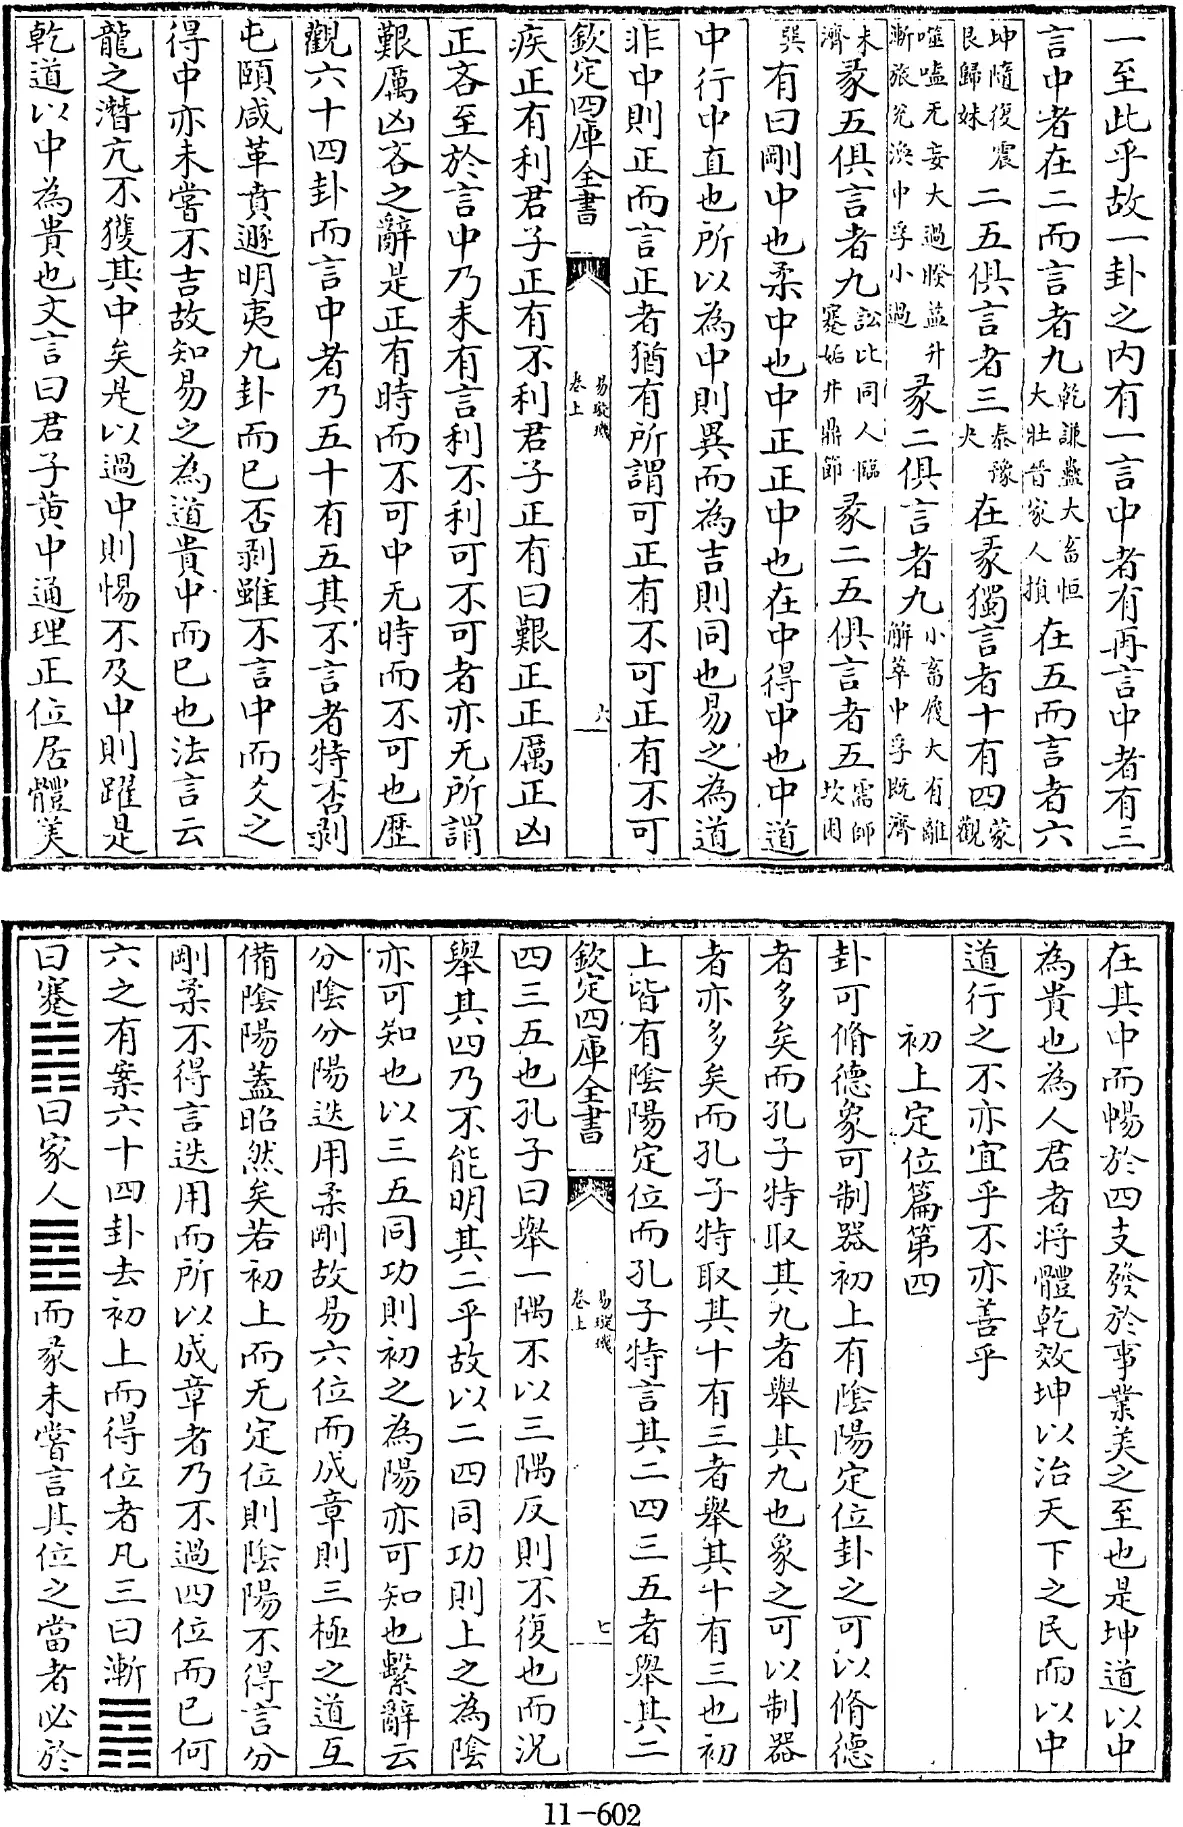 一至此乎故一卦之内有一言中者有再言中者有三
言中者在二而言者九乾謙蠱大畜恒大壯晉家人損在五而言者六
坤隨復震艮歸妹二五俱言者三泰豫夬在彖獨言者十有四蒙觀
噬嗑无妄大過睽益升漸旅兊渙中孚小過彖二俱言者九小畜履大有離解萃中孚既濟
未濟彖五俱言者九訟比同人臨蹇姤井鼎節彖二五俱言者五需師坎困
巽有曰剛中也柔中也中正正中也在中得中也中道
中行中直也所以為中則異而為吉則同也易之為道
非中則正而言正者猶有所謂可正有不可正有不可
欽定四庫全書
易璇璣
卷上
六
疾正有利君子正有不利君子正有曰艱正正厲正凶
正吝至於言中乃未有言利不利可不可者亦无所謂
艱厲凶吝之辭是正有時而不可中无時而不可也歷
觀六十四卦而言中者乃五十有五其不言者特否剥
屯頤咸革賁遯明夷九卦而已否剥雖不言中而爻之
得中亦未嘗不吉故知易之為道貴中而已也法言云
龍之潛亢不獲其中矣是以過中則惕不及中則躍是
乾道以中為貴也文言曰君子黄中通理正位居體美
在其中而暢於四支發於事業美之至也是坤道以中
為貴也為人君者將體乾效坤以治天下之民而以中
道行之不亦宜乎不亦善乎
初上定位篇第四
卦可脩德象可制器初上有陰陽定位卦之可以脩德
者多矣而孔子特取其九者舉其九也象之可以制器
者亦多矣而孔子特取其十有三者舉其十有三也初
上皆有陰陽定位而孔子特言其二四三五者舉其二
欽定四庫全書
易璇璣
卷上
七
四三五也孔子曰舉一隅不以三隅反則不復也而況
舉其四乃不能明其二乎故以二四同功則上之為陰
亦可知也以三五同功則初之為陽亦可知也繫辭云
分陰分陽迭用柔剛故易六位而成章則三極之道互
備陰陽蓋昭然矣若初上而无定位則陰陽不得言分
剛柔不得言迭用而所以成章者乃不過四位而已何
六之有案六十四卦去初上而得位者凡三曰漸䷴
曰蹇䷦曰家人䷤而彖未嘗言其位之當者必於
11-602